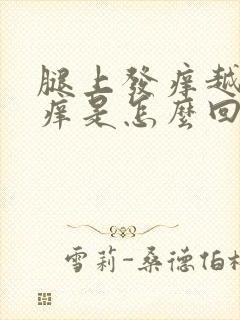 腿上發癢越
癢是怎麼回
雪莉-桑德伯格